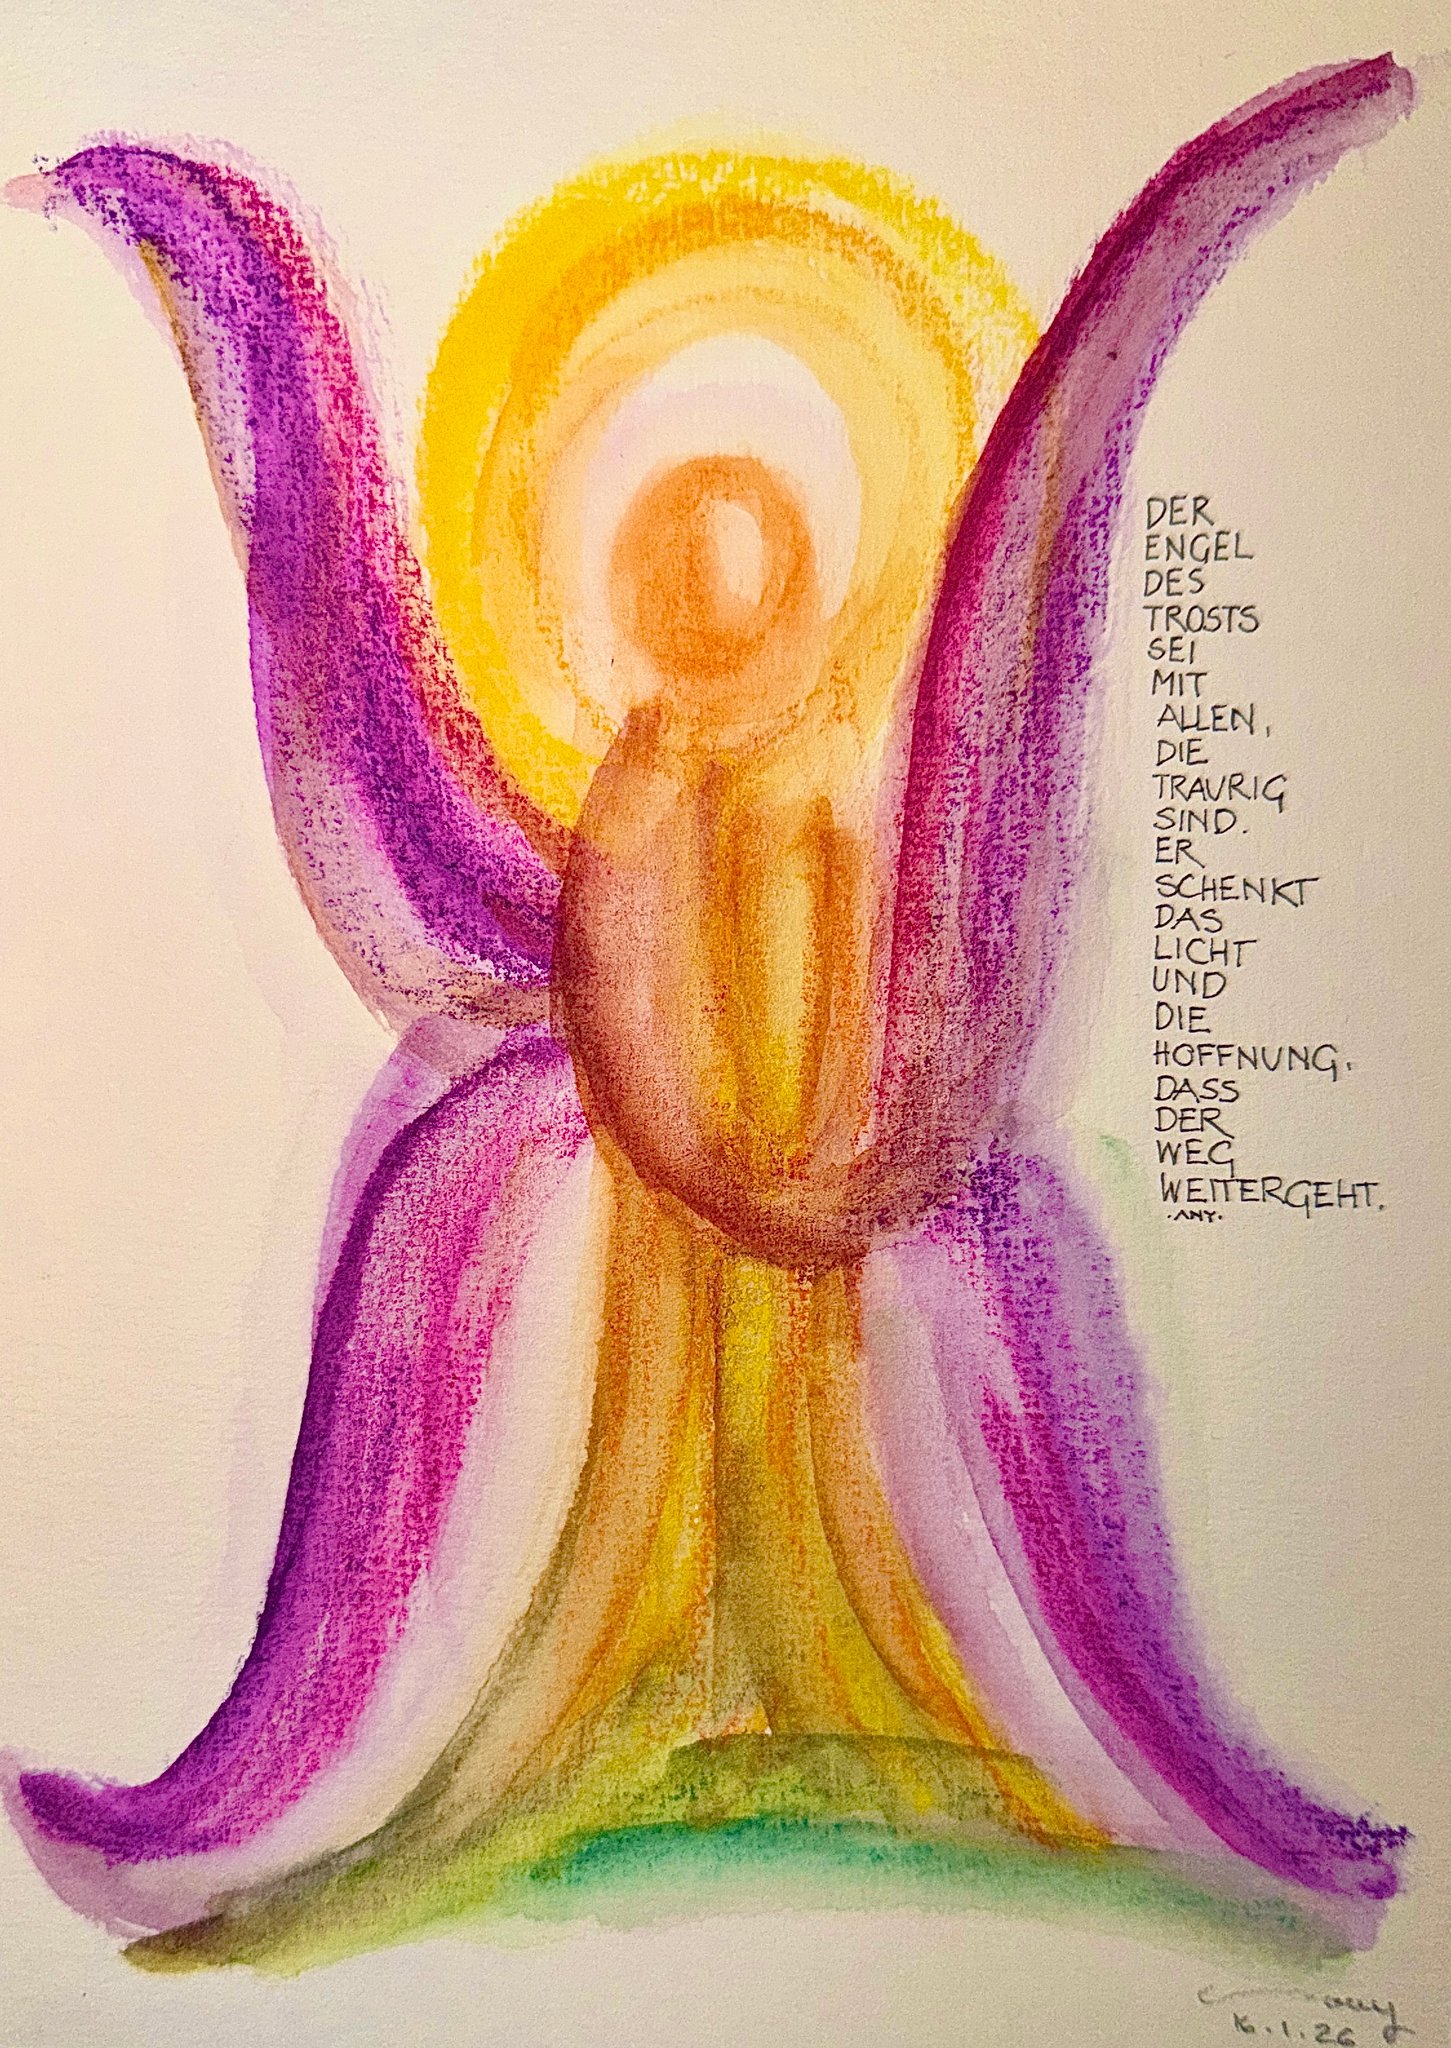 DER
ENGEL
DES
TROSTS
SEI
MIT
ALLEN,
DIE
TRAURIG
SIND.
ER
SCHENKT
DAS
LICHT
UND
DIE
HOFFNUNG,
DASS
DER
WEG
WEITERGEHT.
.ANY.
16.1.26